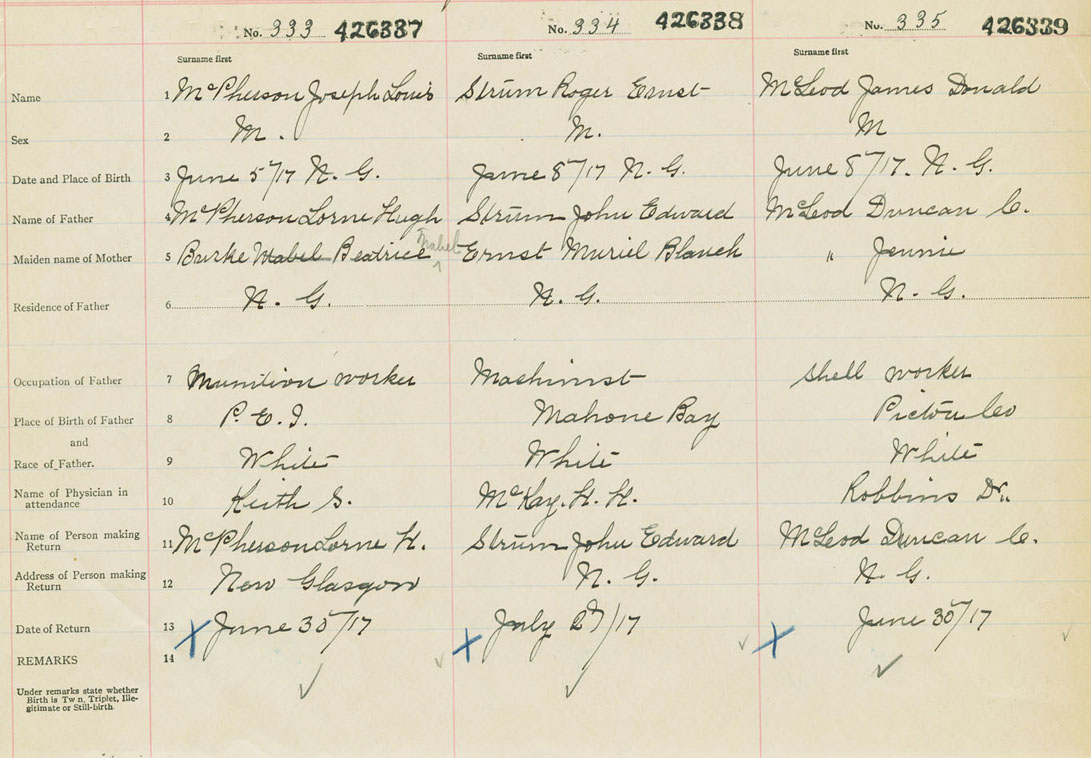 No. 333 426337 No. 334 426338 No. 335 426339
Surname first Surname first Surname first
Name 1 McPherson Joseph Louis Strum Roger Ernst McLeod James Donald
Sex 2 M. M. M
Date and Place of Birth 3 June 5/17 N. G. June 8/17 N. G. June 8/17. N. G.
Name of Father 4 McPherson Lorne Hugh Strum John Edward McLeod Duncan C.
Maiden name of Mother 5 Burke Mabel Beatrice Mabel Ernst Muriel Blanch " Jennie
Residence of Father 6 N. G. N. G. N. G.
Occupation of Father 7 Munition worker Machinist Shell worker
Place of Birth of Father 8 P. E. I. Mahone Bay Pictou Co
and
Race of Father. 9 White White White
Name of Physician in attendance 10 Keith S. McKay. H. H. Robbins Dr.
Name of Person making Return 11 McPherson Lorne H. Strum John Edward McLeod Duncan C.
Address of Person making Return 12 New Glasgow N. G. N. G.
Date of Return 13 June 30/17 July /17 June 30/17
REMARKS 14
Under remarks state whether
Birth is Tw n, Triplet, Ille-
gitimate or Still-birth.